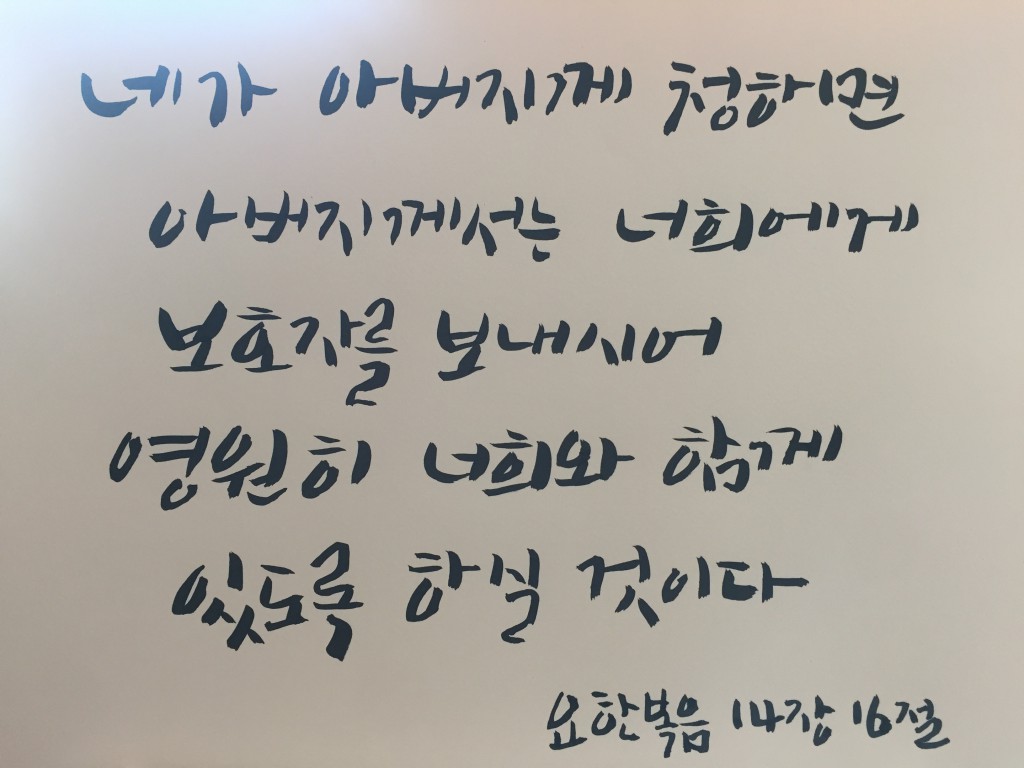 네가 아버지께 청하면
아버지께서는 너희에게
보호자를 보내시어
영원히 너희와 함께
있도록 하실 것이다
요한복음 14장 16절